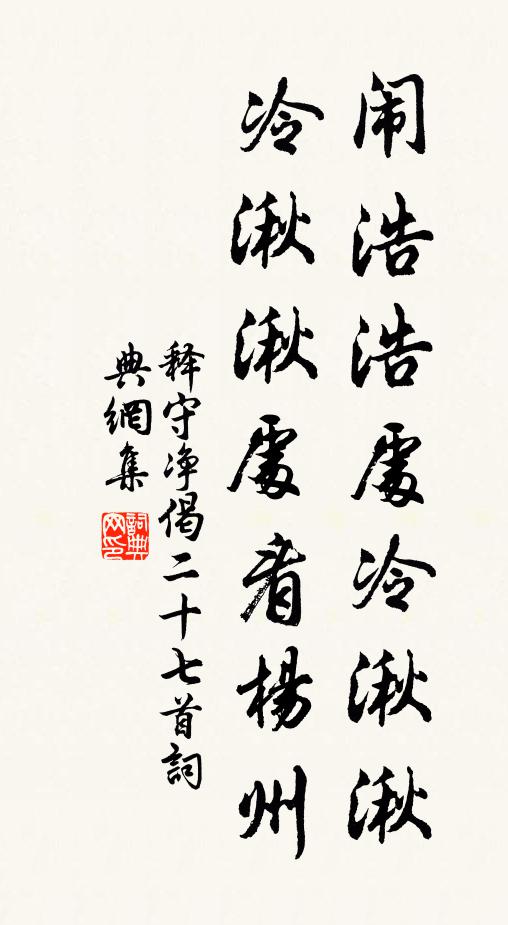 闹浩浩處冷湫湫
冷湫湫處看楊州
释守净偈二十七首詞
典網集
詞典
网印